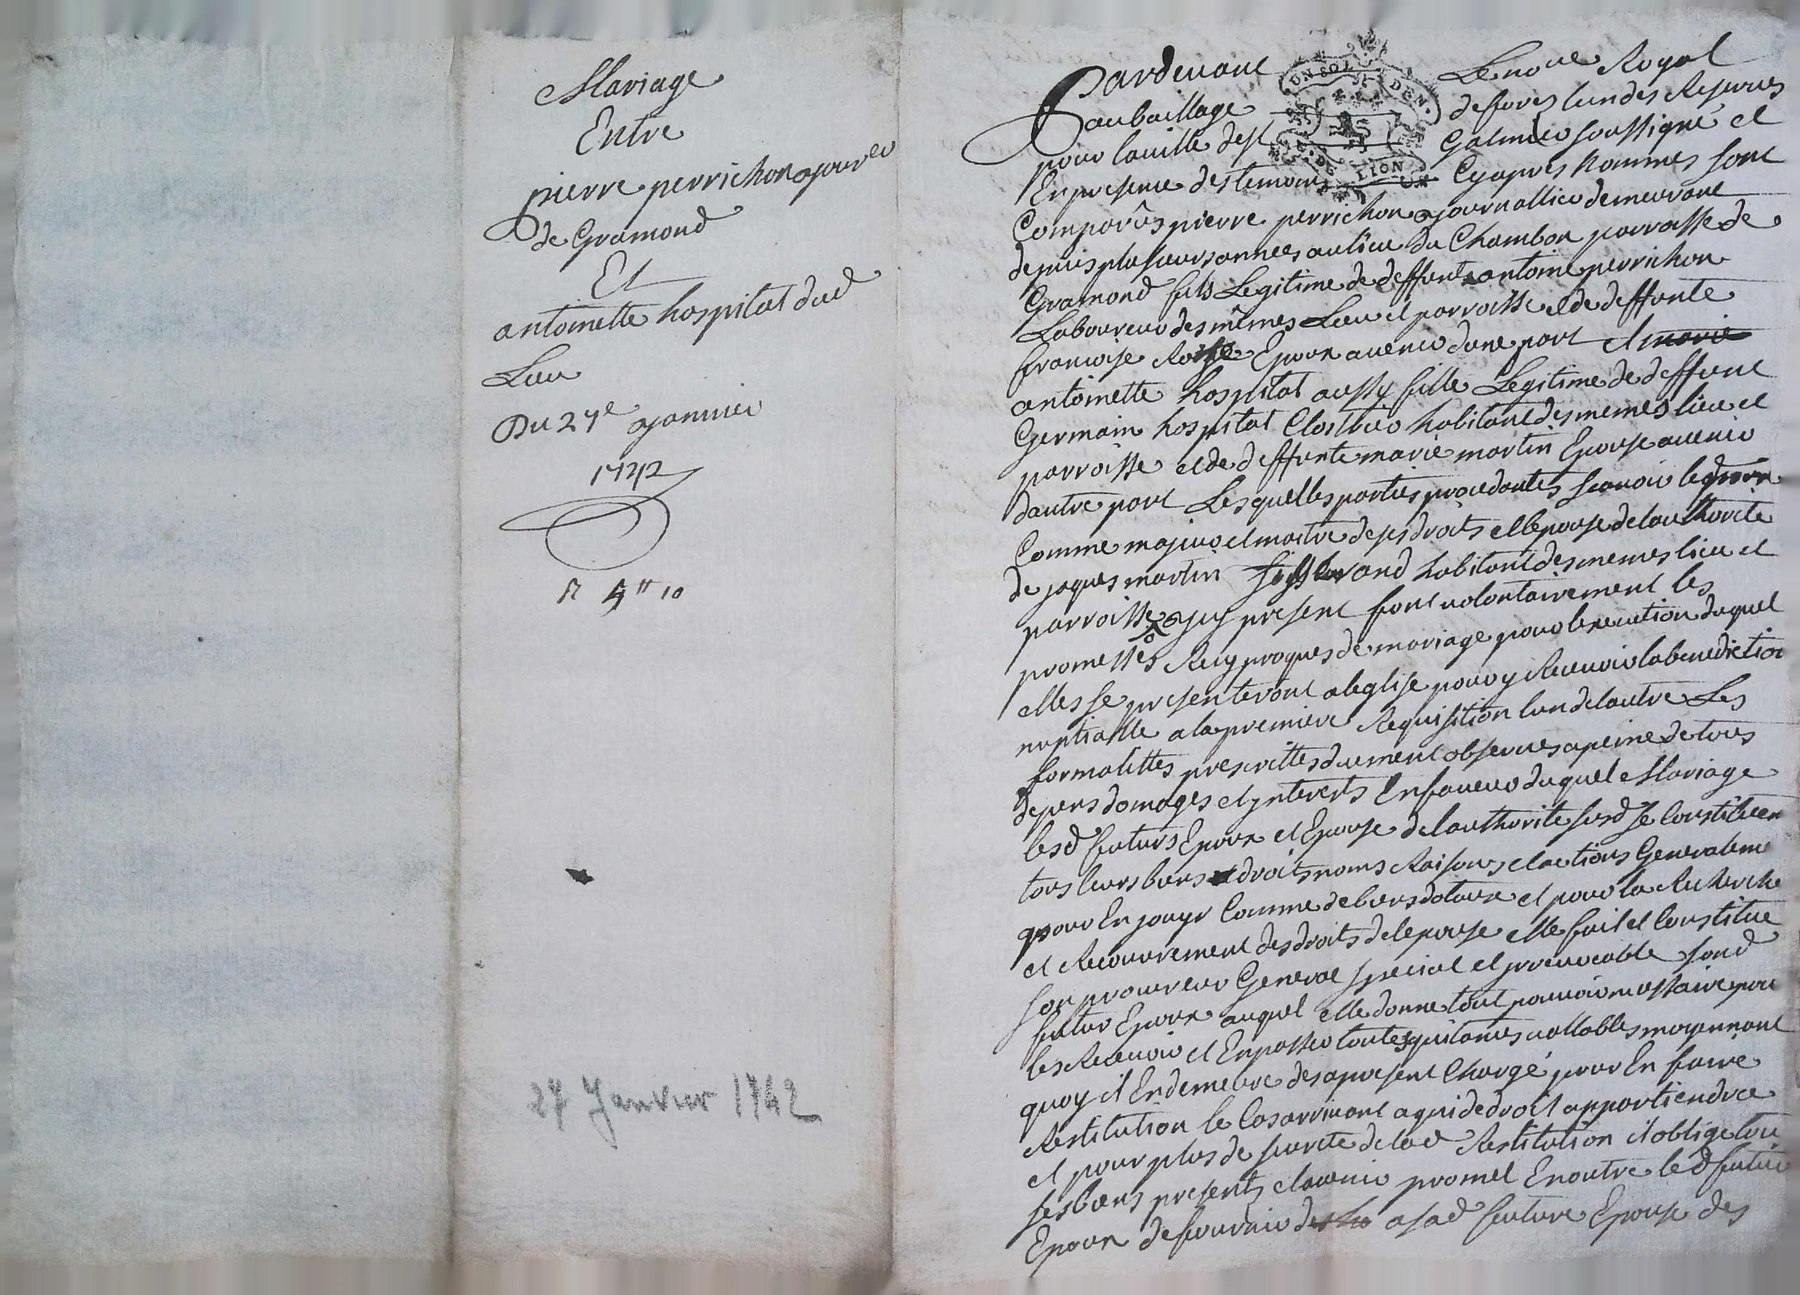 Mariage
Entre
pierre perrichon jour.er
de Gramond
Et
antoinette hospital dud
Lieu
Du 27e janvier
1742
4 tt 10
27 Janvier 1742
UN SOL
DEN.
G. DE LION
Pardevant Le nore Royal
au bailliage de forez lun des Reservés
pour la ville de St Galmier soussigné et
En presence des temoins Cy apres Nommés sont
Comparûs pierre perrichon journallier demeurant
depuis plusieurs années au lieu du Chambon parroisse de
Gramond fils Legitime de deffunt antoine perrichon
Laboureur des mêmes Lieu et parroisse et de deffunte
francoise Epoux avenir dune part et marie
antoinette hospital aussy fille Legitime de deffunt
Germain hospital Clostrier habitant des memes lieu et
parroisse et de deffunte marie martin Epouse avenir
dautre part Lesquelles parties procedantes scavoir led
Comme majeur et maitre de ses droits et lepouse de lauthorité
de jaques martin habitant des memes lieu et
parroisse ajcy present font volontairement les
promesses Recyproques de mariage pour lexecution duquel
elles se presenteront a leglise pour y Recevoir la benediction
nuptialle a la premiere Requisition lun de lautre Les
formalittés prescrittes duement observées a peine de tous
depens domages et jnterests En faveur duquel Mariage
lesd futurs Epoux et Epouse de lauthorité susd se Constituent
tous leurs biens droits noms Raisons et actions Generalement
pour En jouyr Comme de biens dotaux et pour la Recherche
et Recouvrement des droits de lepouse elle fait et Constitue
son procureur General special et jrrevocable sond
futur Epoux auquel elle donne tout pouvoir necessaire pour
les Recevoir et En passer toutes quitances vallables moyennant
quoy il En demeure des apresent Chargé pour En faire
Restitution le Cas arrivant a qui de droit appartiendra
et pour plus de sureté de lad Restitution il oblige tous
ses biens presents et avenir promet En outre led futur
Epoux de fournir a sad future Epouse des